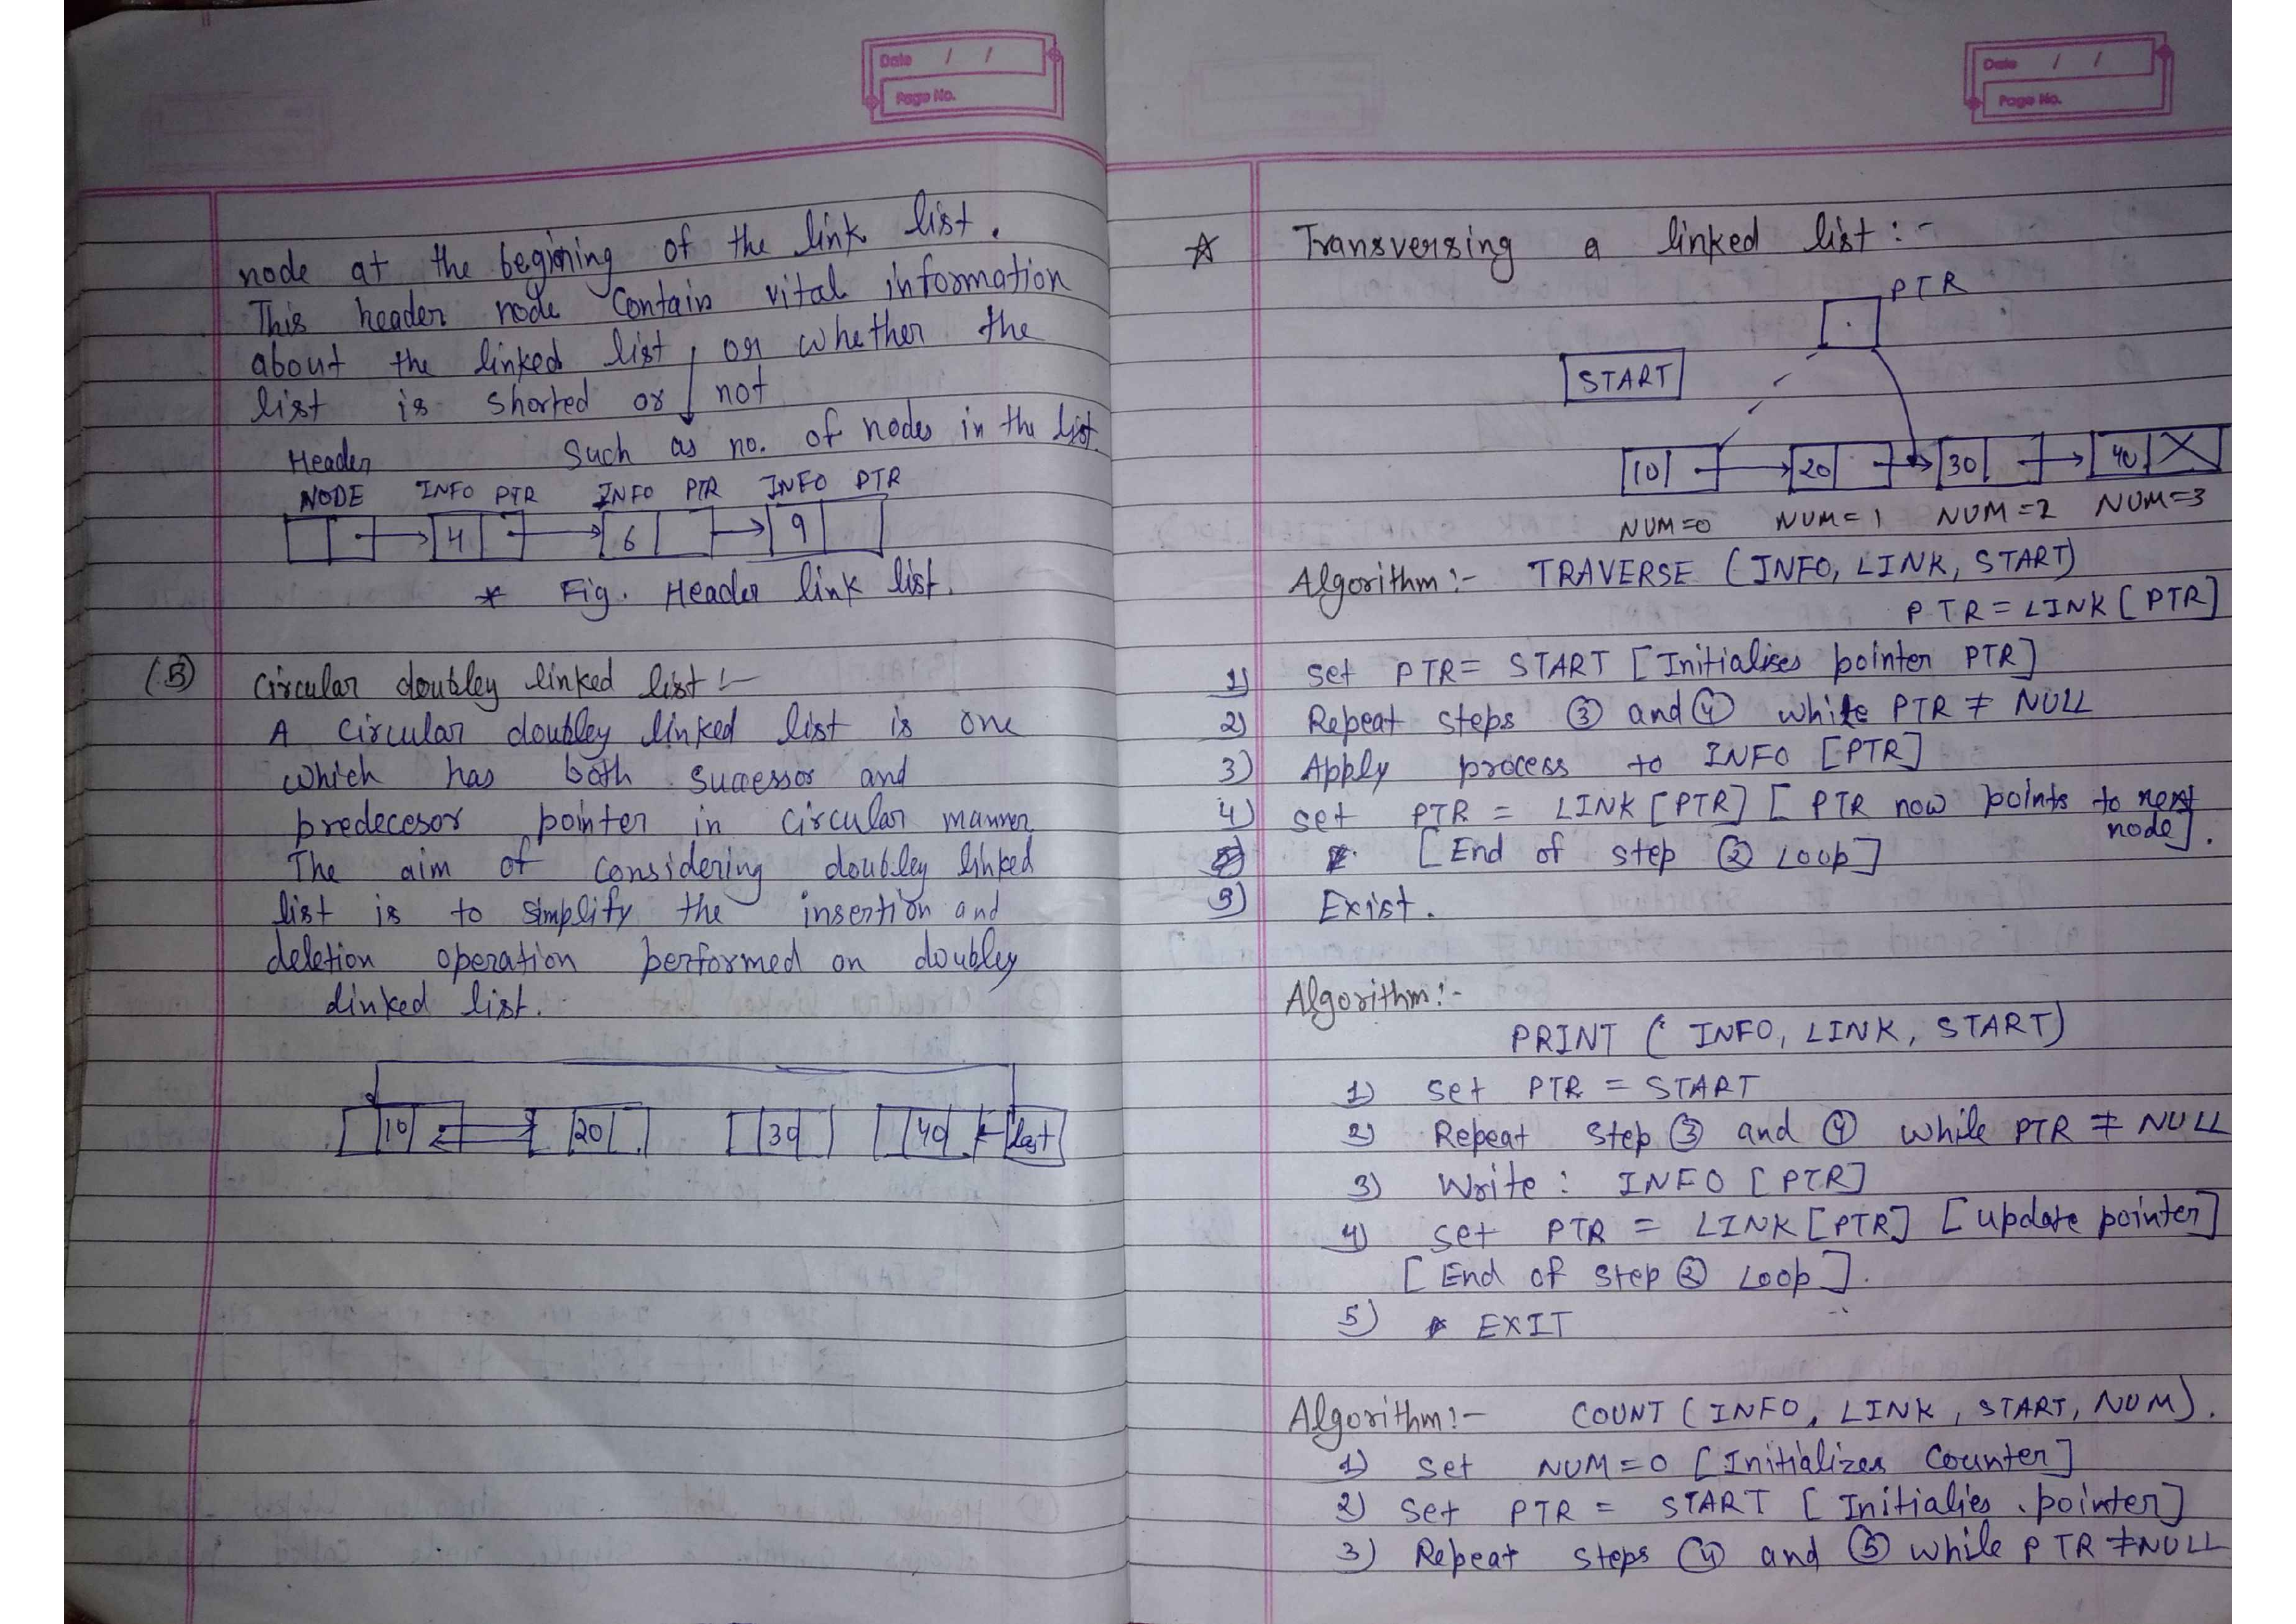 Date / /
Page No.
node at the begining of the link list.
This header node Contain vital information
about the linked list, or whether the
list is shorted or not
Such as no. of nodes in the list.
Header
NODE INFO PTR INFO PTR INFO PTR
4 6 9
* Fig. Header link list.
(5) Circular doubley linked list :-
A circular doubley linked list is one
which has both successor and
predecesor pointer in circular manner
The aim of considering doubley linked
list is to simplify the insertion and
deletion operation performed on doubley
linked list.
10 20 30 40 last
Date / /
Page No.
☆ Transversing a linked list :-
PTR
START
10 20 30 40
NUM=0 NUM=1 NUM=2 NUM=3
Algorithm :- TRAVERSE (INFO, LINK, START)
PTR = LINK [PTR]
1) Set PTR = START [Initialises pointer PTR]
2) Repeat steps ③ and ④ while PTR ≠ NULL
3) Apply process to INFO [PTR]
4) set PTR = LINK [PTR] [PTR now points to next
node].
[End of step ② Loop]
5) Exist.
Algorithm :-
PRINT ( INFO, LINK, START)
1) set PTR = START
2) Repeat Step ③ and ④ while PTR ≠ NULL
3) Write : INFO [PTR]
4) set PTR = LINK [PTR] [update pointer]
[End of step ② Loop].
5) EXIT
Algorithm :- COUNT (INFO, LINK, START, NUM).
1) Set NUM=0 [Initializes Counter]
2) Set PTR = START [Initialies pointer]
3) Repeat steps ④ and ⑤ while PTR ≠ NULL